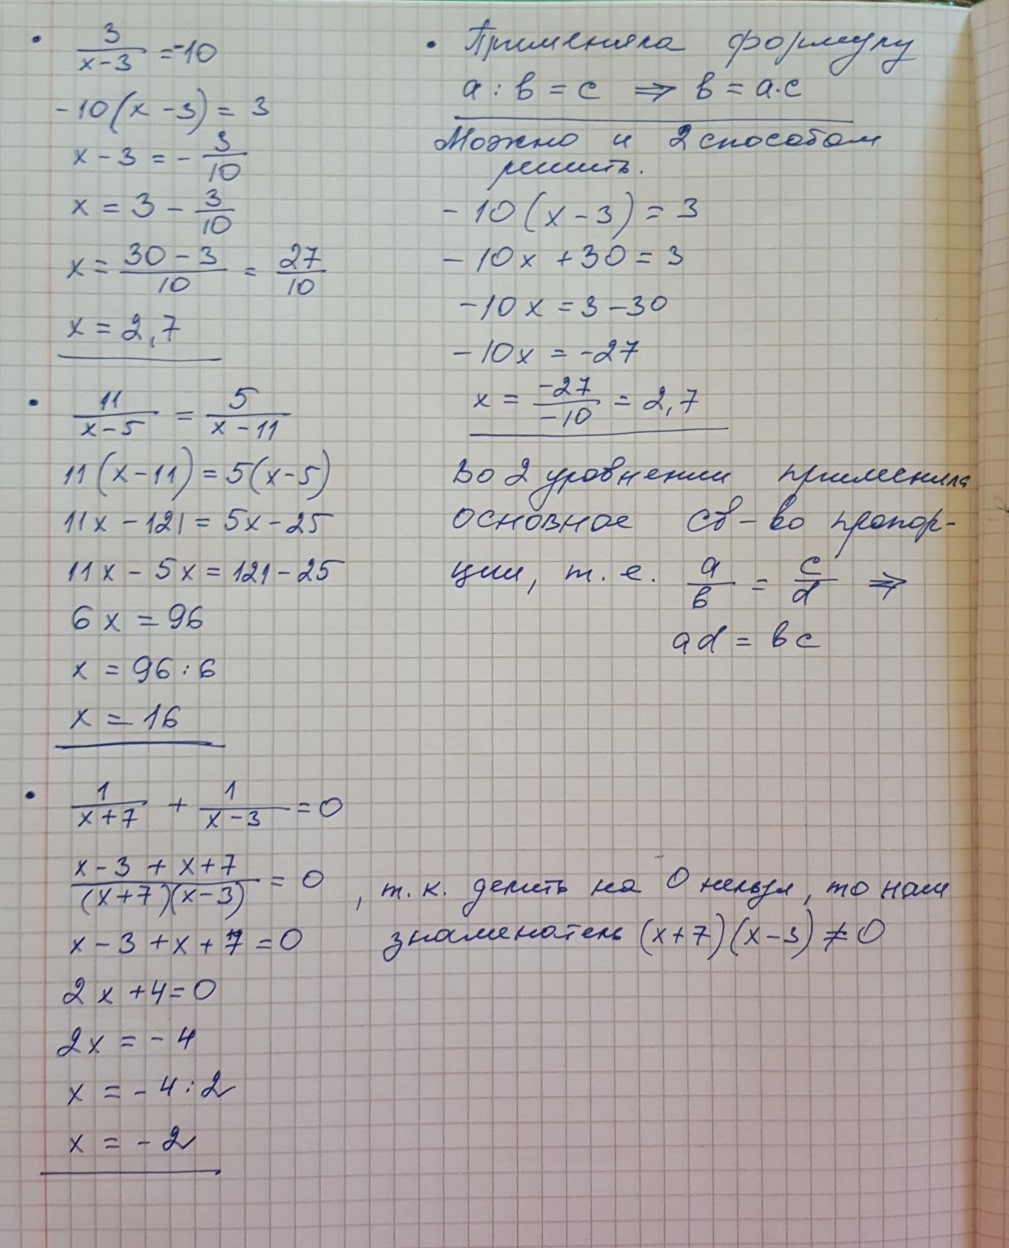 • 3/(x-3) = -10
-10(x-3) = 3
x-3 = -3/10
x = 3 - 3/10
x = (30-3)/10 = 27/10
x = 2,7
• Применяла формулу
a : в = c ⇒ в = a·c
Можно и 2 способом
решить.
-10(x-3) = 3
-10x + 30 = 3
-10x = 3-30
-10x = -27
x = -27/-10 = 2,7
• 11/(x-5) = 5/(x-11)
11(x-11) = 5(x-5)
11x - 121 = 5x - 25
11x - 5x = 121 - 25
6x = 96
x = 96 : 6
x = 16
Во 2 уровнении применила
основное св-во пропор-
ции, т. е. a/в = c/d ⇒
ad = вc
• 1/(x+7) + 1/(x-3) = 0
(x-3+x+7)/((x+7)(x-3)) = 0 , т. к. делить на 0 нельзя, то нам
знаменатель (x+7)(x-3) ≠ 0
x-3+x+7 = 0
2x+4=0
2x = -4
x = -4 : 2
x = -2